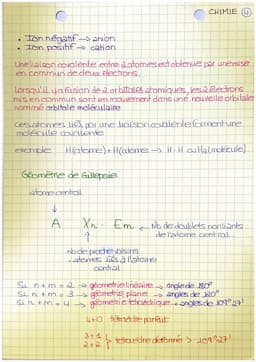 CHIMIE 4
• Ion négatif → anion
• Ion positif → cation
Une liaison covalente entre 2 atomes est obtenue par une mise
en commun de deux électrons.
Lorsqu'il y a fusion de 2 orbitales atomiques, les 2 électrons
mis en commun sont en mouvement dans une nouvelle orbitale
nommé orbitale moléculaire
Ces atomes liés par une liaison covalente forment une
molécule covalente
exemple: H(atome) + H(atome → H-H ou H2 (molécule).
Géométrie de Gillepsie
atome central
A Xn Em ← Nb de doublets nonliants
de l'atome central
nb de proches voisins
atomes liés à l'atome
central
Si n+m = 2 → géométrie linéaire → angle de 180°
Si n+m = 3 → géométrie plane → angles de 120°
Si n+m = 4 → géométrie tétraédrique → angles de 109°27'
4+0 tétraèdre parfait
3+1
2+2 } tétraèdre déformé > 109°27'